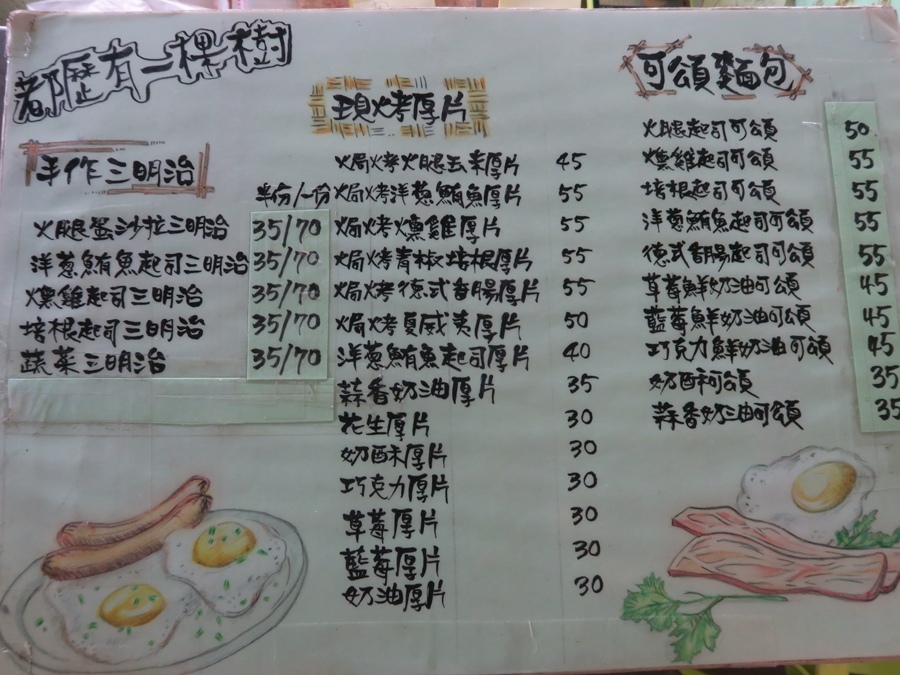 都歷有一棵樹
手作三明治
半份/一份
火腿蛋沙拉三明治 35/70
洋蔥鮪魚起司三明治 35/70
燻雞起司三明治 35/70
培根起司三明治 35/70
蔬菜三明治 35/70
現烤厚片
焗烤火腿玉米厚片 45
焗烤洋蔥鮪魚厚片 55
焗烤燻雞厚片 55
焗烤青椒培根厚片 55
焗烤德式香腸厚片 55
焗烤夏威夷厚片 50
洋蔥鮪魚起司厚片 40
蒜香奶油厚片 35
花生厚片 30
奶酥厚片 30
巧克力厚片 30
草莓厚片 30
藍莓厚片 30
奶油厚片 30
可頌麵包
火腿起司可頌 50
燻雞起司可頌 55
培根起司可頌 55
洋蔥鮪魚起司可頌 55
德式香腸起司可頌 55
草莓鮮奶油可頌 45
藍莓鮮奶油可頌 45
巧克力鮮奶油可頌 45
奶酥可頌 35
蒜香奶油可頌 35